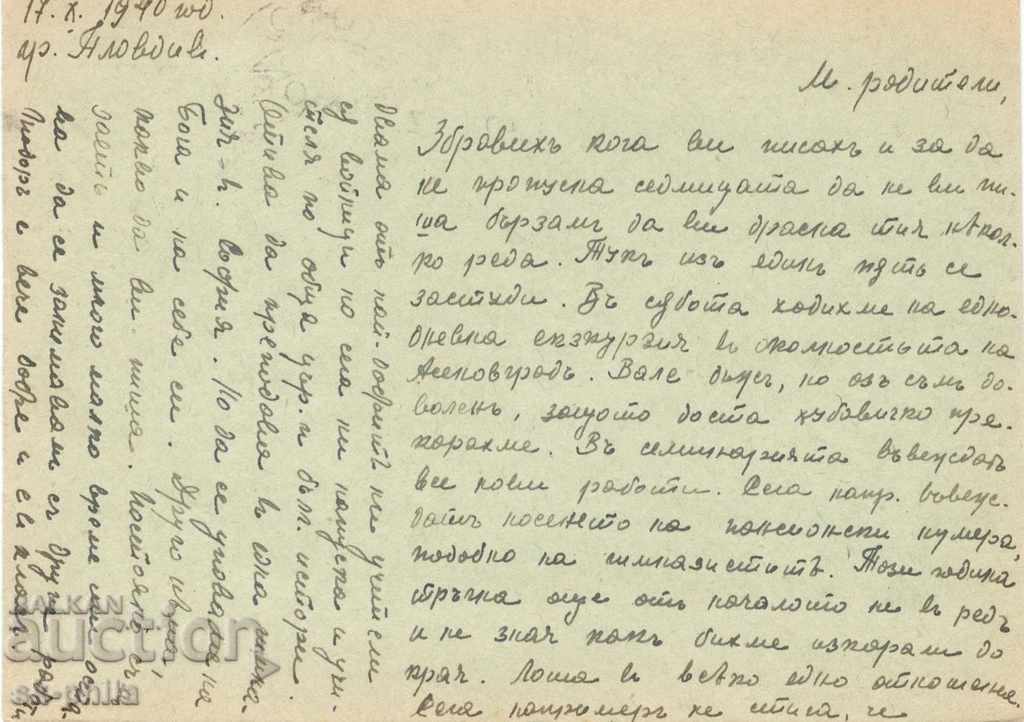 17.X.1940 год.
гр. Пловдивъ.
М. родители,
Збравихъ кога ви писахъ и за да
не пропусна седмицата да не ви пи-
ша бързамъ да ви драсна тия нѣкол-
ко реда. Тукъ изъ единъ пѫть се
застуди. Въ сѫбота ходихме на едно-
дневна екзкурзия въ околностьта на
Асеновградъ. Вале дъжд, но азъ съмъ до-
воленъ, защото доста хубавичко пре-
карахме. Въ семинарията въвеждатъ
все нови работи. Сега напр. въвеж-
датъ носенето на пансионски нумера,
подобно на гимназиститѣ. Тази година
тръгна още отъ началото не въ редъ
и не зная какъ бихме изкарали до
края. Лоша въ всѣко едно отношение.
Сега напримеръ не стига, че
двама отъ най-добритѣ ни учители
сѫ войници но сега ни напуска и учи-
теля по обща църк. и бълг. история.
Отива да преподава въ една гимна-
зия въ София. Но да се уповаваме на
Бога и на себе си. Друго нѣма
какво да ви пиша. Постоянно съ
заетъ и много малко време ми оста-
ва да се занимавамъ съ други работи
Тодоръ е вече добре и е въ клас
BALKAN
auction
sk-phila